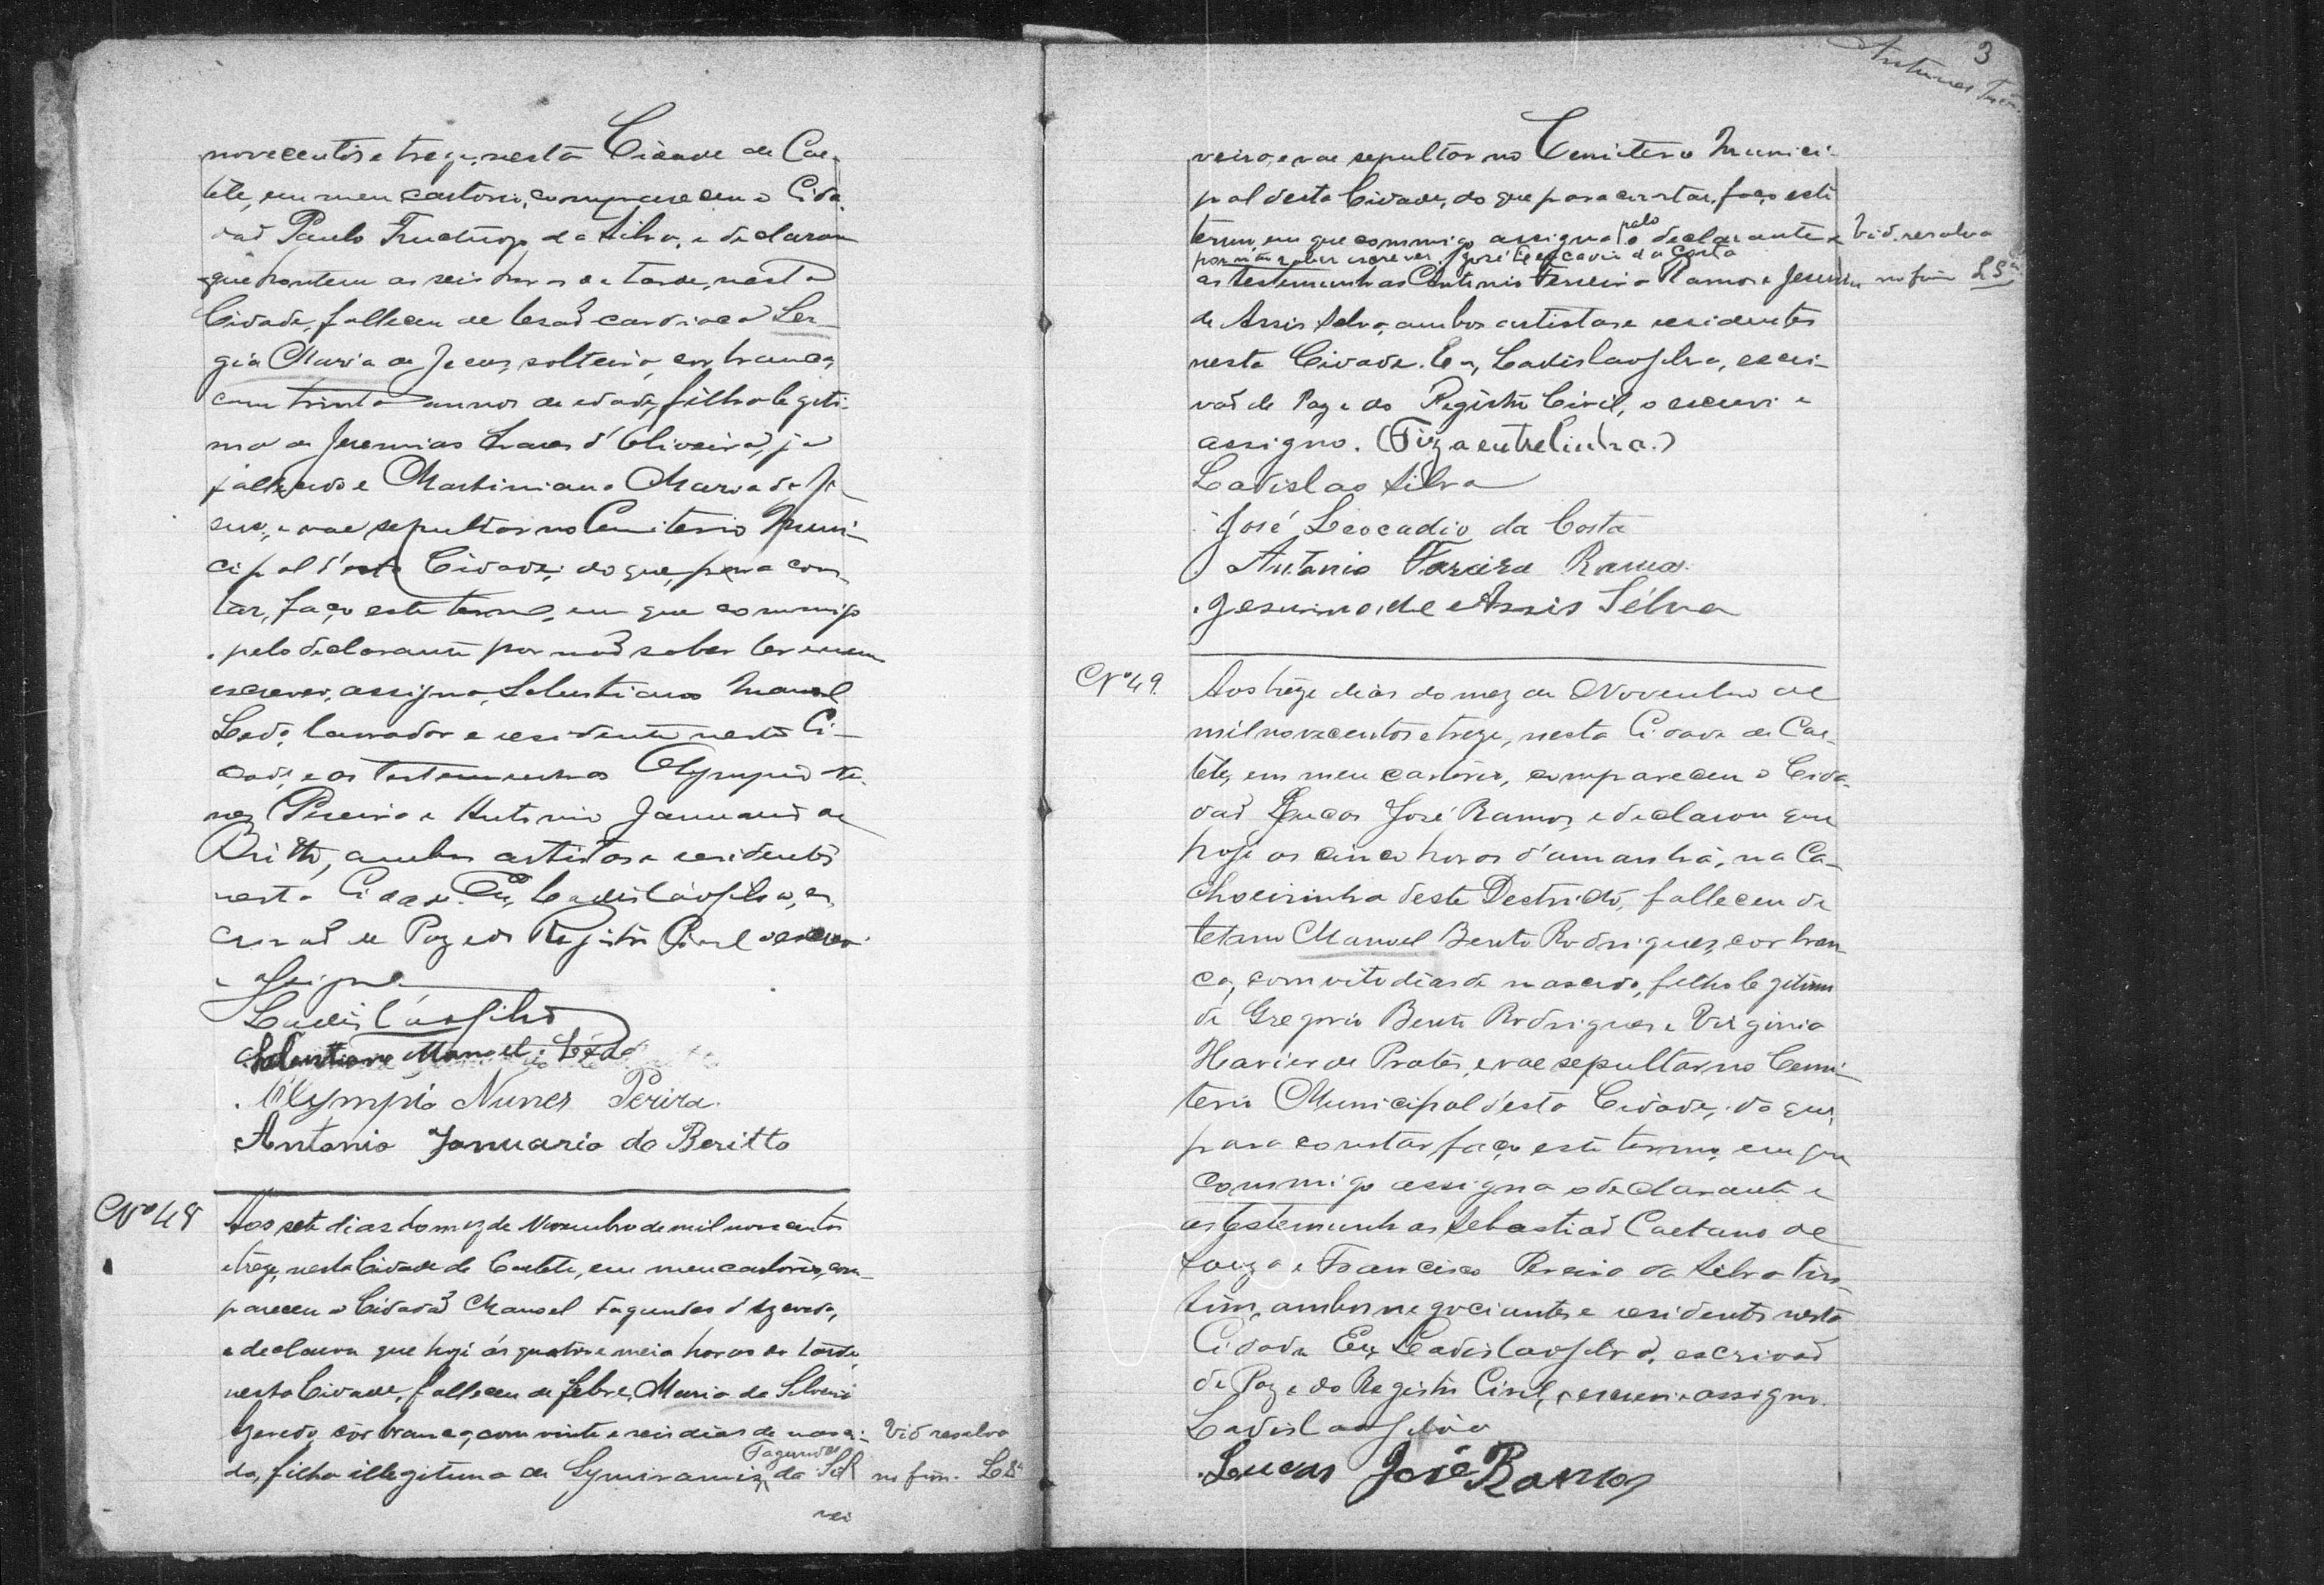 novecentos e treze, nesta Cidade de Cae-
tete, em meu cartorio, compareceu o Cida-
dão Paulo Fructuozo da Silva, e declarou
que hontem as seis horas da tarde, nesta
Cidade, falleceu de lesão cardiaca Ser-
gia Maria de Jesus, solteira, cor branca,
com trinta annos de edade, filha legiti-
ma de Jeremias d'Oliveira, já
fallecido e Martiniana Maria de Je-
sus, e vae sepultar no Cemiterio Muni-
cipal d'esta Cidade; do que, para cons-
tar, faço este termo, em que commigo
pelo declarante por não saber ler e nem
escrever, assigna, Salustiano Manoel
Ledo, lavrador e residente nesta Ci-
dade, e as testemunhas Olympio Nu-
nes Pereira e Antonio Januario de
Britto, ambos artistas e residentes
nesta Cidade. Eu, Ladisláo Silva, es-
crivão de Paz e do Registro Civil o escrevi
e assigno
Ladisláo Silva
Salustiano Manoel Lédo
Olympio Nunes Perira
Antonio Januario do Beritto
Nº 48
Aos sete dias do mez de Novembro de mil novecentos
e treze, nesta Cidade de Caetete, em meu cartorio, com-
pareceu o Cidadão Manoel Fagundes d'Azevedo,
e declarou que hoje ás quatro e meia horas da tarde,
nesta Cidade, falleceu de febre, Maria da Silveira
Azevedo, côr branca, com vinte e seis dias de nasci- Vid resalva
Fagundes
da, filha illegitima de Symiramiz da Sil no fim. LSª
vei
3
Antunes
veira, e vae sepultar no Cemiterio Munici-
pal desta Cidade, do que para constar, faço este
pelo
termo, em que commigo assigna o declarante e Vid. resalva
por não saber escrever José Leocadio da Costa
as testemunhas Antonio Ferreira Ramos e Jesuino no fim LSª
de Assis Silva, ambos artistas e residentes
nesta Cidade. Eu, Ladislao Silva, escri-
vão de Paz e do Registro Civil, o escrevi e
assigno. (Fiz a entrelinha.)
Ladislao Silva
José Leocadio da Costa
Antonio Fareira Ramos
Gesuino de Assis Silva
Nº 49.
Aos treze dias do mez de Novembro de
mil novecentos e treze, nesta Cidade de Cae-
tete, em meu cartorio, compareceu o Cida-
dão Lucas José Ramos, e declarou que
hoje as cinco horas d'amanhã, na Ca-
choeirinha deste Destricto, falleceu de
tetano Manoel Bento Rodrigues, cor bran-
ca, com oito dias de nascido, filho legitimo
de Gregorio Bento Rodrigues e Virginia
Xavier de Prates, e vae sepultar no Cemi-
terio Municipal d'esta Cidade; do que,
para constar, faço este termo, em que
commigo assigna o declarante e
as testemunhas Sebastião Caetano de
Souza e Francisco Pereira da Silva
ambos negociantes e residentes nesta
Cidade. Eu, Ladislao Silva, escrivão
de Paz e do Registro Civil, o escrevi e assigno.
Ladislao Silva
Lucas José Ramos